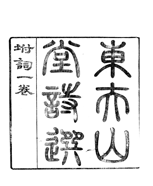 東木山
堂詩選
坿詞一卷